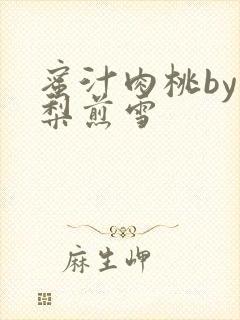 蜜汁肉桃by
梨煎雪
麻生岬